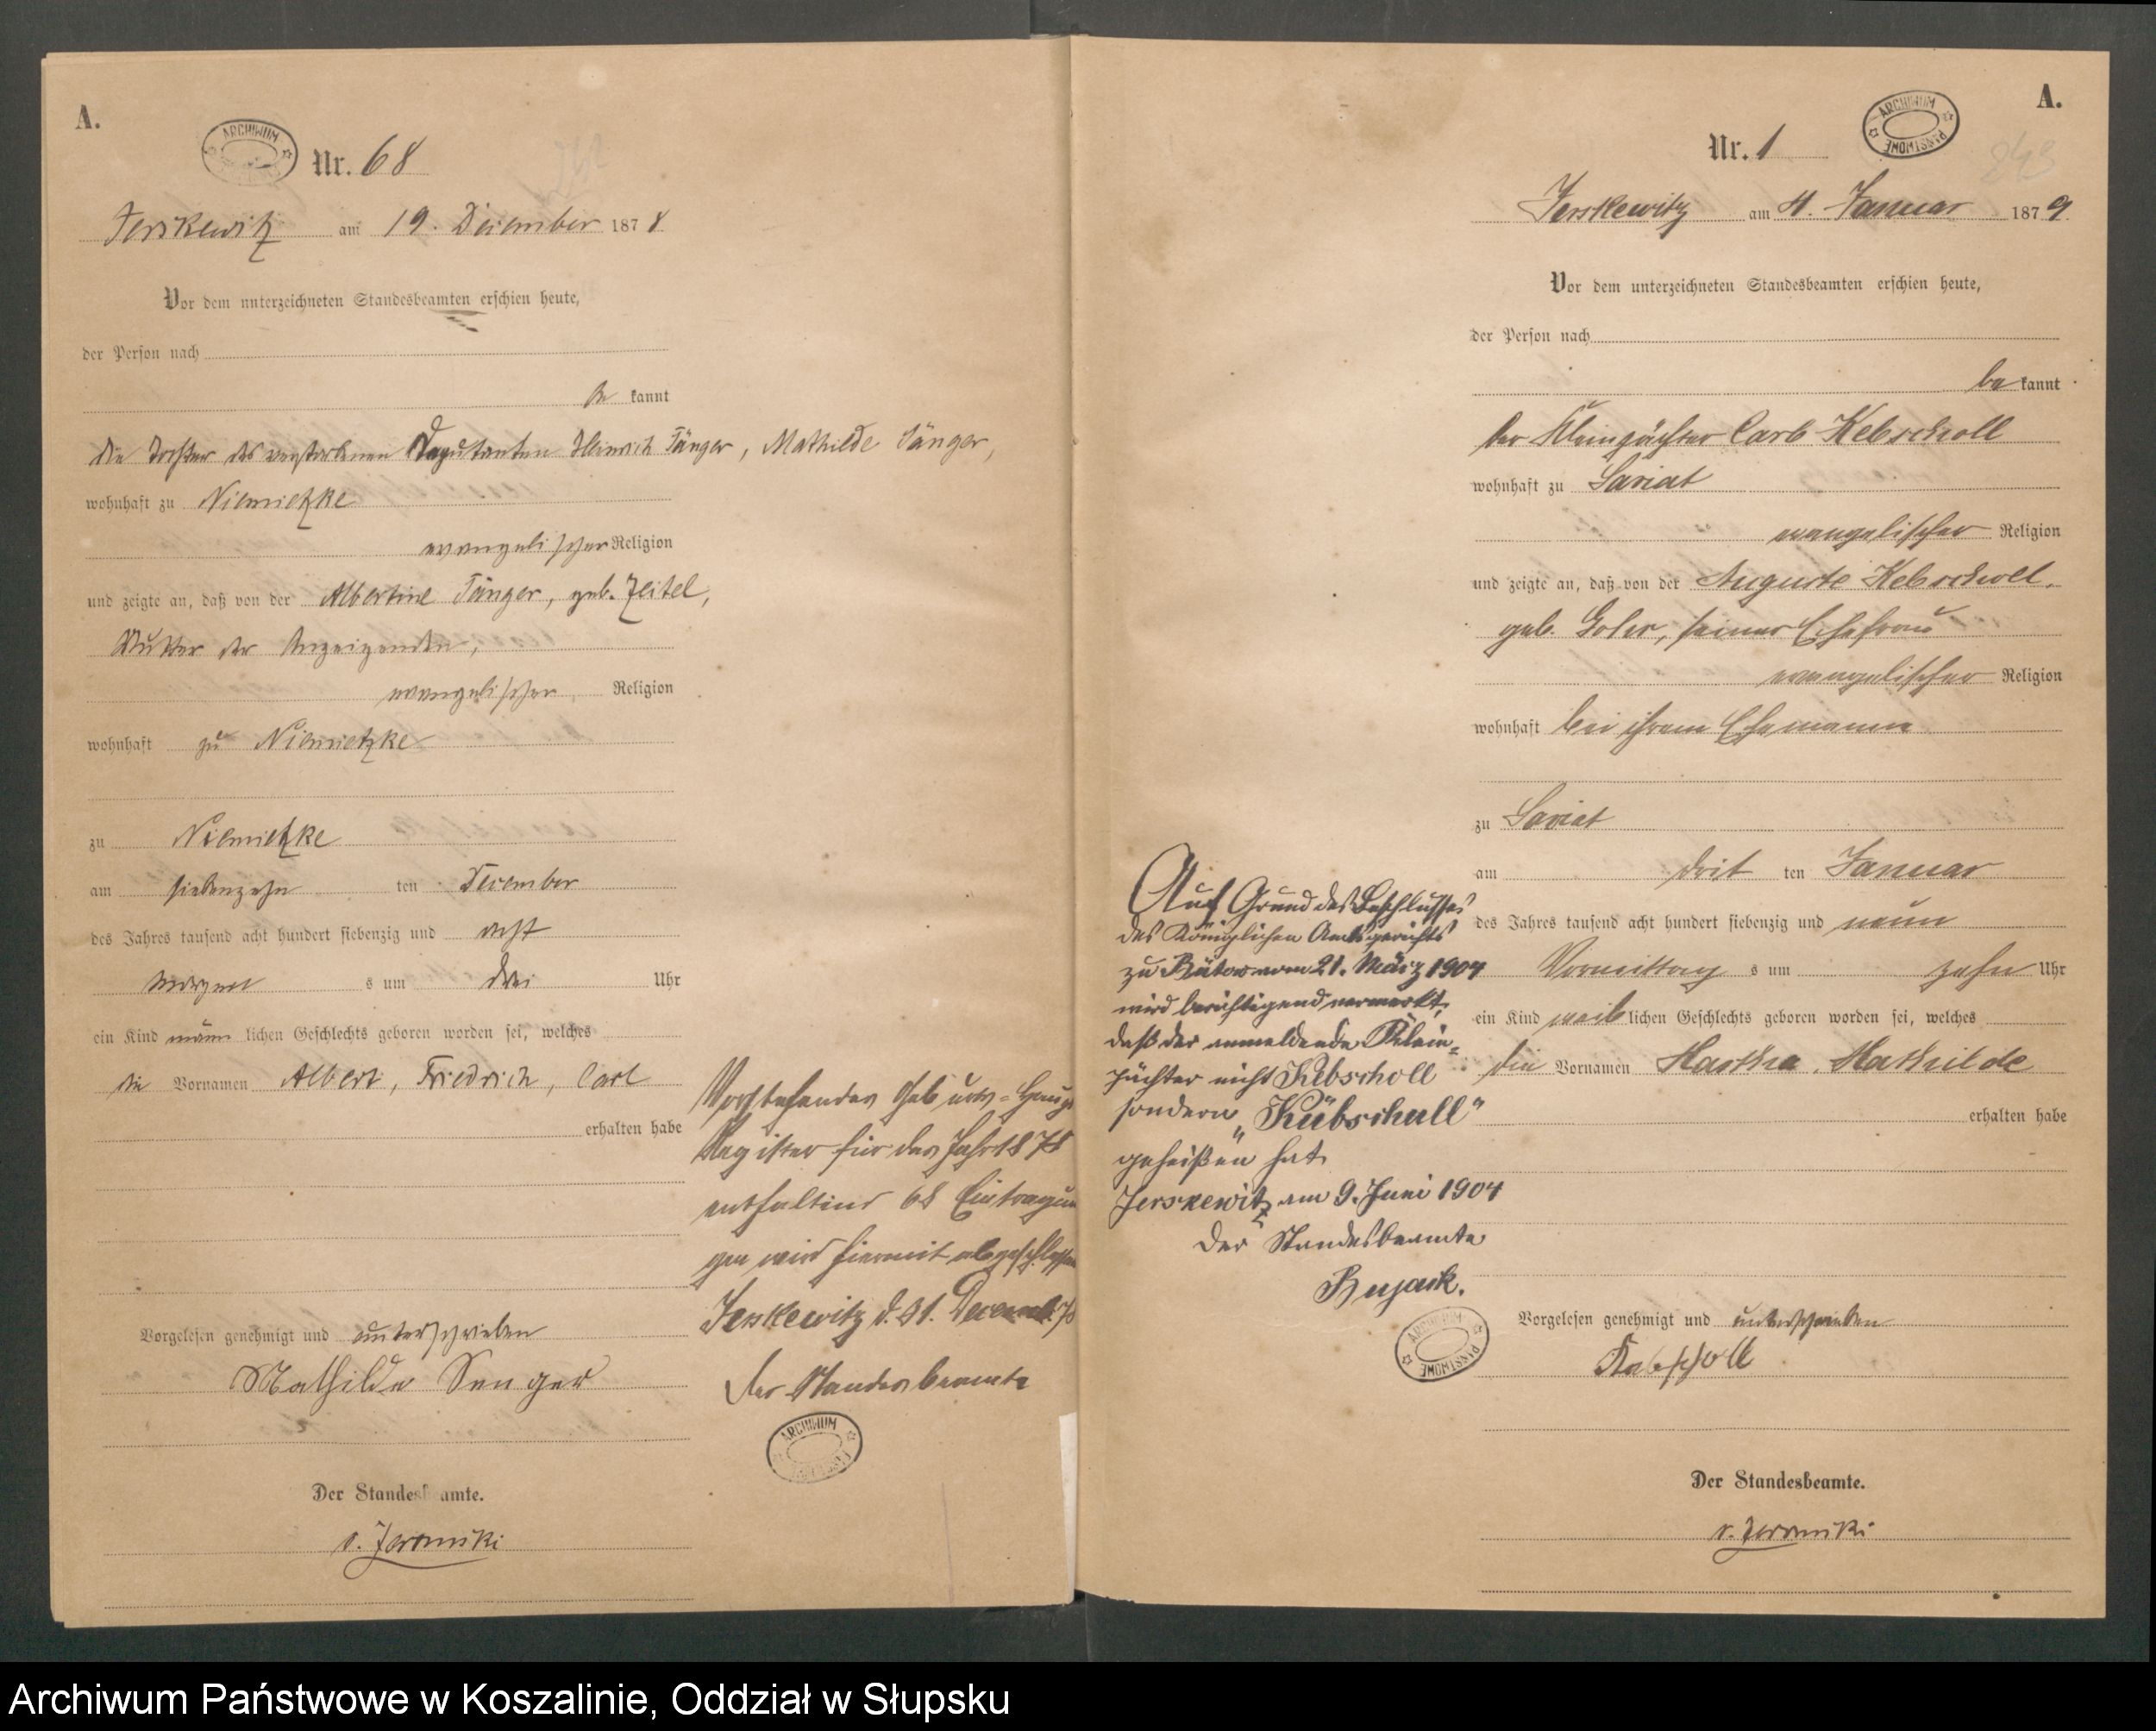 A.
ARCHIWUM
Nr. 68
Jerskewitz am 19. December 1878
Vor dem unterzeichneten Standesbeamten erschien heute,
der Person nach
be kannt
die Tochter des verstorbenen Deputanten Heinrich Sänger, Mathilde Sänger,
wohnhaft zu Niemietzke
evangelischer Religion
und zeigte an, daß von der Albertine Sänger, geb. Zeitel,
Mutter der Anzeigenden,
evangelischer Religion
wohnhaft zu Niemietzke
zu Niemietzke
am siebenzehn ten December
des Jahres tausend acht hundert siebenzig und acht
Morgen s um drei Uhr
ein Kind männ lichen Geschlechts geboren worden sei, welches
die Vornamen Albert, Friedrich, Carl
erhalten habe
Vorgelesen genehmigt und unterschrieben
Mathilde Senger
Der Standesbeamte.
Vorstehendes Geburts-Haupt
Register für das Jahr 1878
enthaltend 68 Eintragun
gen wird hiermit abgeschlossen
Jerskewitz d. 31. Decemb. 78
Der Standesbeamte
ARCHIWUM
A.
ARCHIWUM PAŃSTWOWE
Nr. 1
Jerskewitz am 4. Januar 1879
Vor dem unterzeichneten Standesbeamten erschien heute,
der Person nach
be kannt
der Kleinpächter Carl Kebscholl
wohnhaft zu Sariat
evangelischer Religion
und zeigte an, daß von der Auguste Kebscholl,
geb. Goler, seiner Ehefrau
evangelischer Religion
wohnhaft bei ihrem Ehemanne
zu Sariat
am drit ten Januar
des Jahres tausend acht hundert siebenzig und neun
Vormittag s um zehn Uhr
ein Kind weib lichen Geschlechts geboren worden sei, welches
die Vornamen Martha, Mathilde
erhalten habe
Vorgelesen genehmigt und unterschrieben
Kebscholl
Der Standesbeamte.
Auf Grund des Beschlusses
des Königlichen Amtsgerichts
zu Bütow vom 21. März 1904
wird berichtigend vermerkt,
daß der anmeldende Klein-
pächter nicht Kebscholl
sondern „Kübschull"
geheißen hat.
Jerskewitz am 9. Juni 1904
Der Standesbeamte
Bujack.
ARCHIWUM PAŃSTWOWE
Archiwum Państwowe w Koszalinie, Oddział w Słupsku